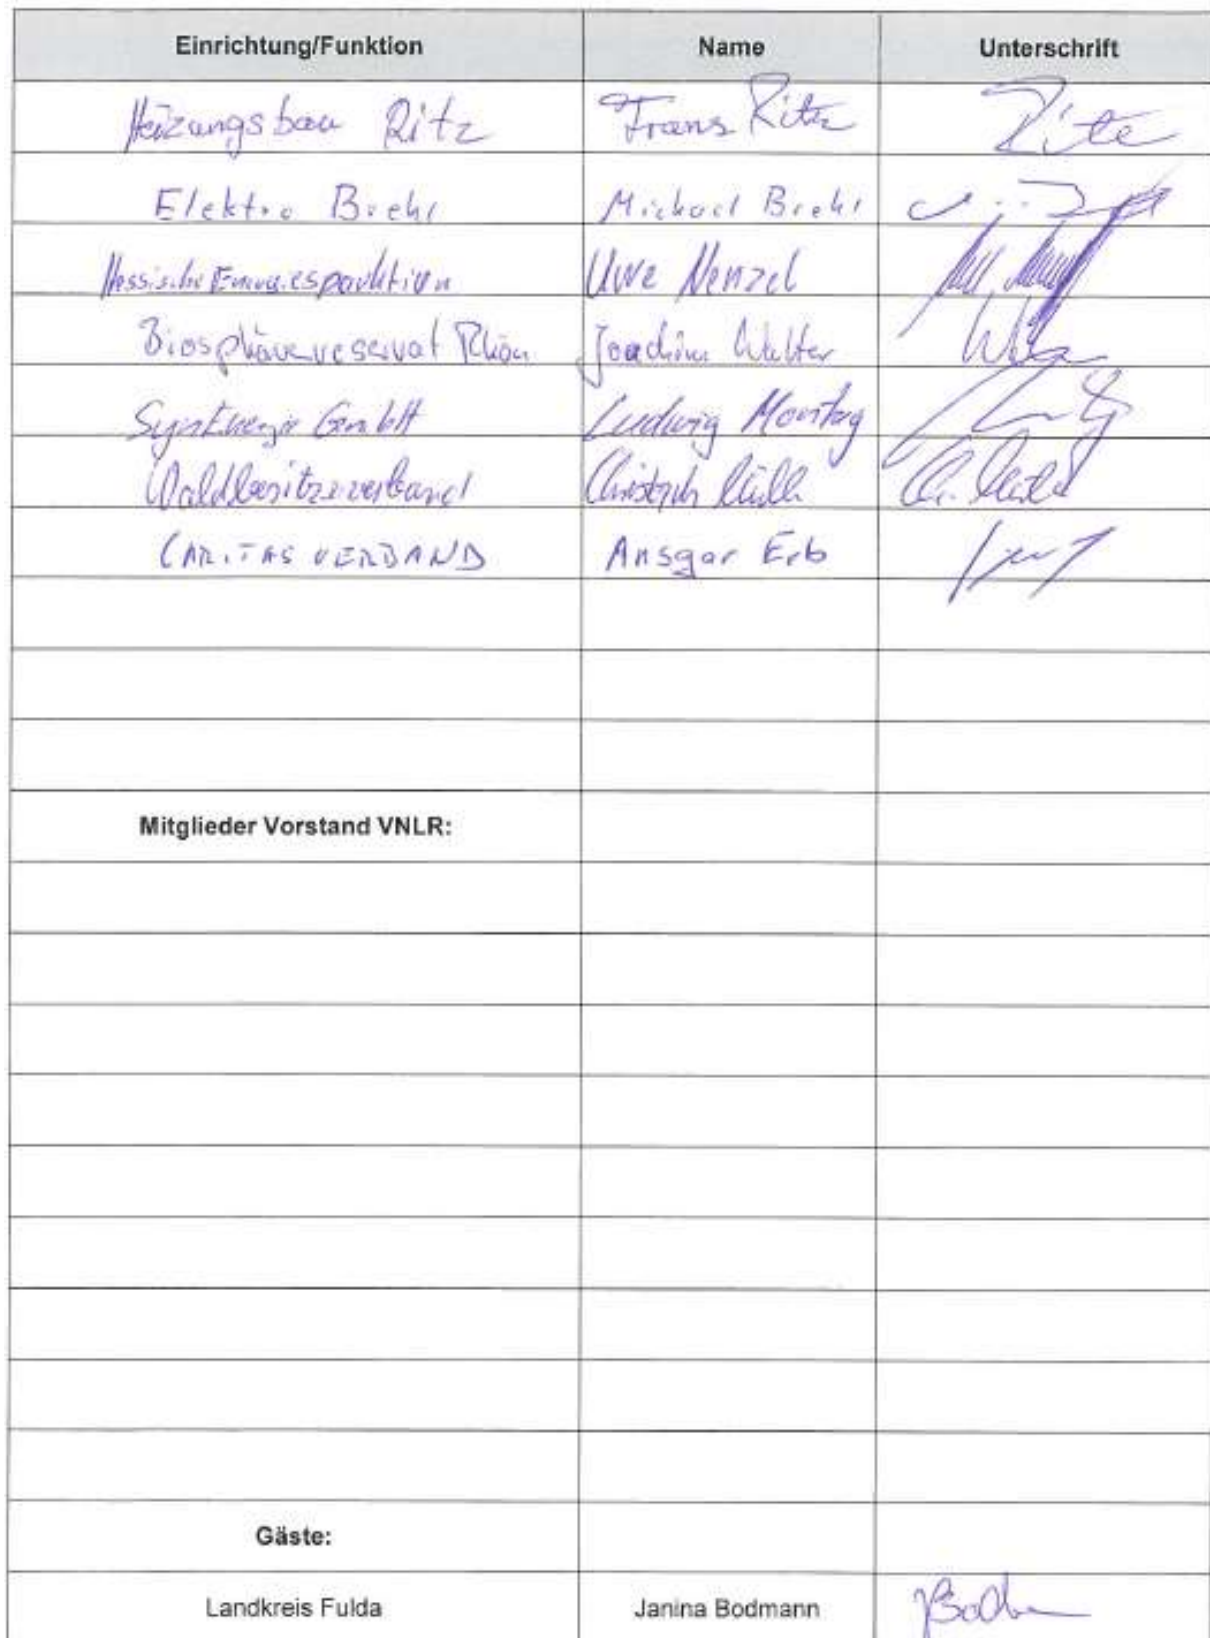 Einrichtung/Funktion Name Unterschrift
Heizungsbau Ritz Frans Ritz Ritz
Elektro Brehl Michael Brehl
Hessische Energiesparaktion Uwe Wenzel
Biosphärenreservat Rhön Joachim Walter
SynEnergie GmbH Ludwig Montag
Waldbesitzerverband Christoph
CARITASVERBAND Ansgar Erb
Mitglieder Vorstand VNLR:
Gäste:
Landkreis Fulda Janina Bodmann